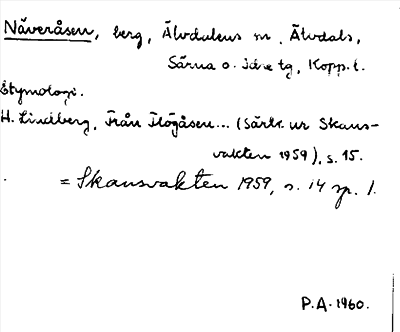 Näveråsen, berg, Älvdalens m, Älvdals,
Särna o. Idre tg, Kopp. l.
Etymologi.
H. Lindberg, Från Flögåsen... (Särtr. ur Skans-
vakten 1959), s. 15.
= Skansvakten 1959, s. 14 sp. 1.
P.A. 1960.